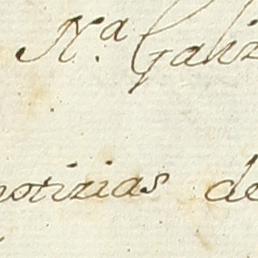 N.ª Galiz
notizias de